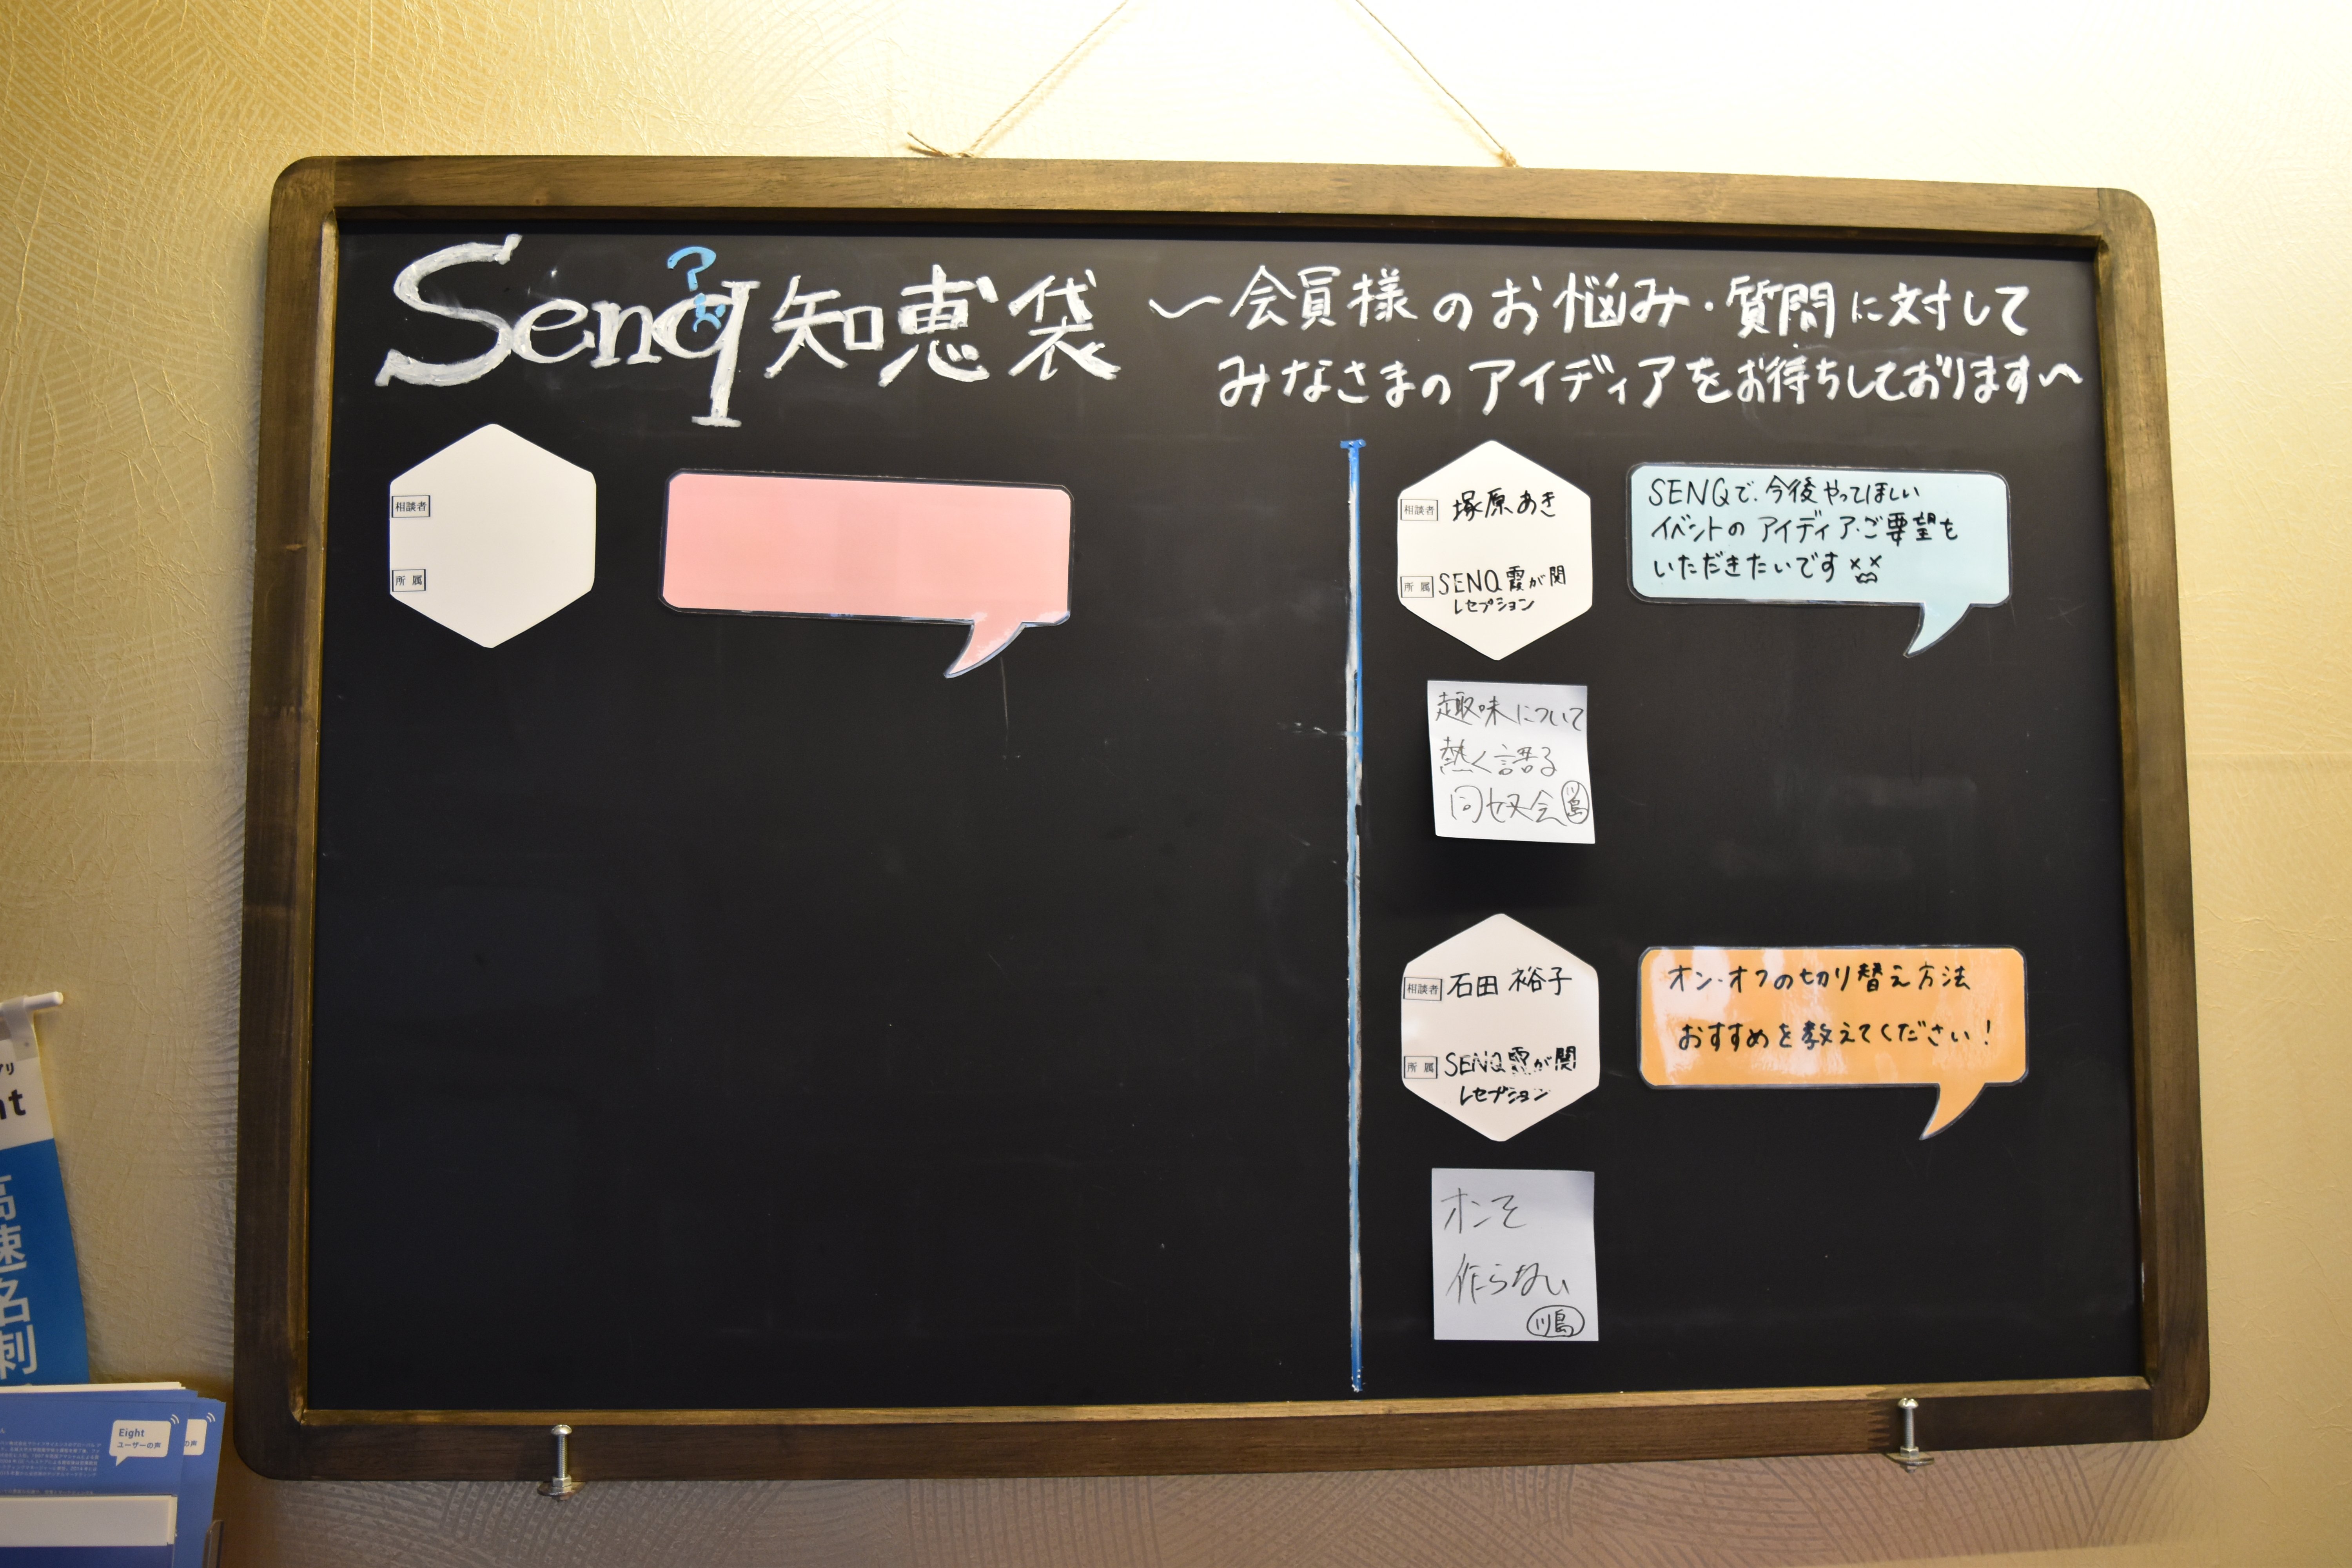 Senq知恵袋
〜会員様のお悩み・質問に対して
みなさまのアイディアをお待ちしております〜
相談者
所属
相談者 塚原あき
所属 SENQ霞が関
レセプション
SENQで、今後やってほしい
イベントのアイディア・ご要望を
いただきたいです
趣味について
熱く語る
同好会 川島
相談者 石田裕子
所属 SENQ霞が関
レセプション
オン・オフの切り替え方法
おすすめを教えてください!
オンを
作らない
川島
高速名刺
Eight
ユーザーの声